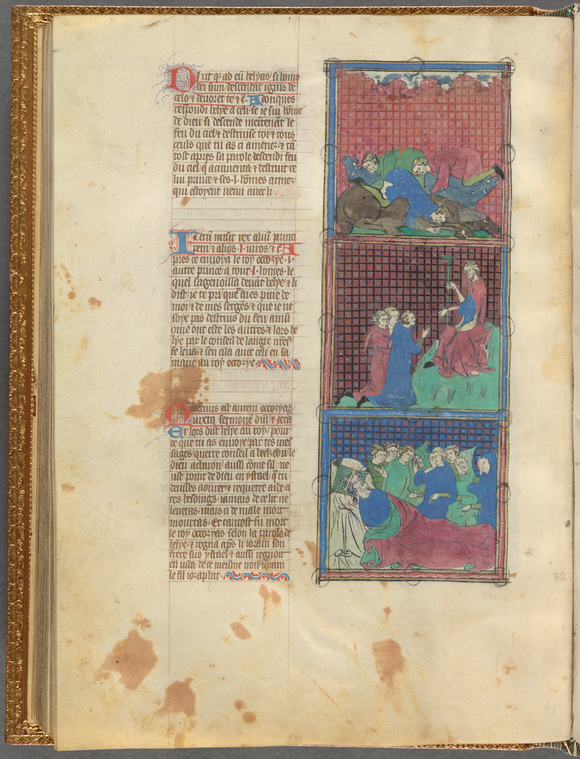 Dixit qz ad eu helyas si homo
dei sum descendat ignis de
celo et devoret te et c̄. Adonques
respondi helye a celi se ie sui home
de dieu si descende maintenāt le
feu du ciel et destruise toy et tous
ceulx que tu as ci amenez et tā
tost apres sa parole descendi feu
du ciel
lui prince et ses .l. hōmes armez
qui estoyent venu avec li
Iterū misit rex aliū princi
pem et alios .l. viros et c̄ A
pres ce envoya le roy ocozye .i.
autre prince a tout .l. homes le
quel sagenoilla devāt helye et li
dist ie te pri que aies pitie de
moi et de mes sergēs et que ie ne
soye pas destruis du feu ainsi
ome ont este les autres et lors he
lye par le conseil de langre
se leva et sen ala avec celi en sa
maire au roy ocozye
Mortuus est autem ocozyas
iuxta sermonē dnī et cetā
Et lors dist helye au roy pour
ce que tu as envoye par tes mes
sages querre conseil a beelzebub le
dieu acharon aussi come sil ne
fust point de dieu en ysrael qui tu
deusses aourer et requerre aide a
tes besoings iamais de ce lit ne
leveras mais a de male mort
mourras Et tantost fu mort
le roy ocozyas selon la parole de
helye et regna aps li ioram son
frere sus ysrael et aussi regnoit
en iuda de ce meisme non ioram
le fil iozaphat